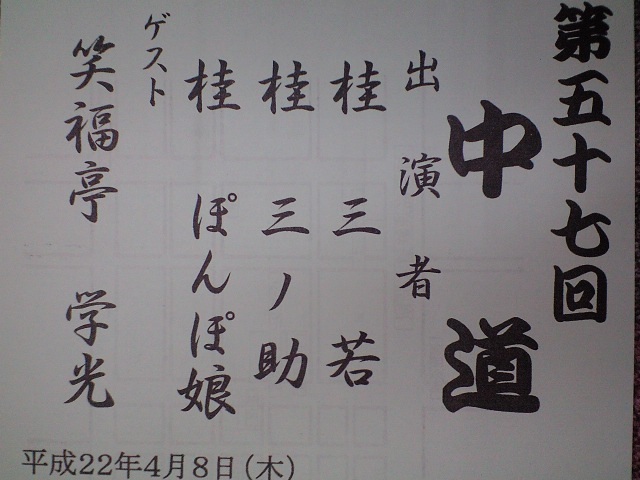 第五十七回
中道
出演者
桂 三若
桂 三ノ助
桂 ぽんぽ娘
ゲスト
笑福亭 学光
平成22年4月8日(木)